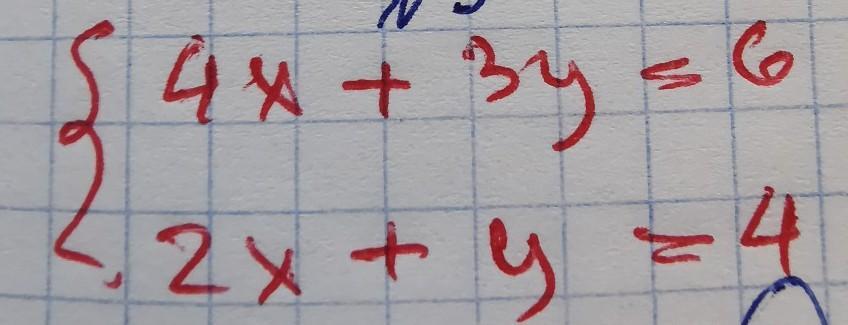 4x + 3y = 6
2x + y = 4